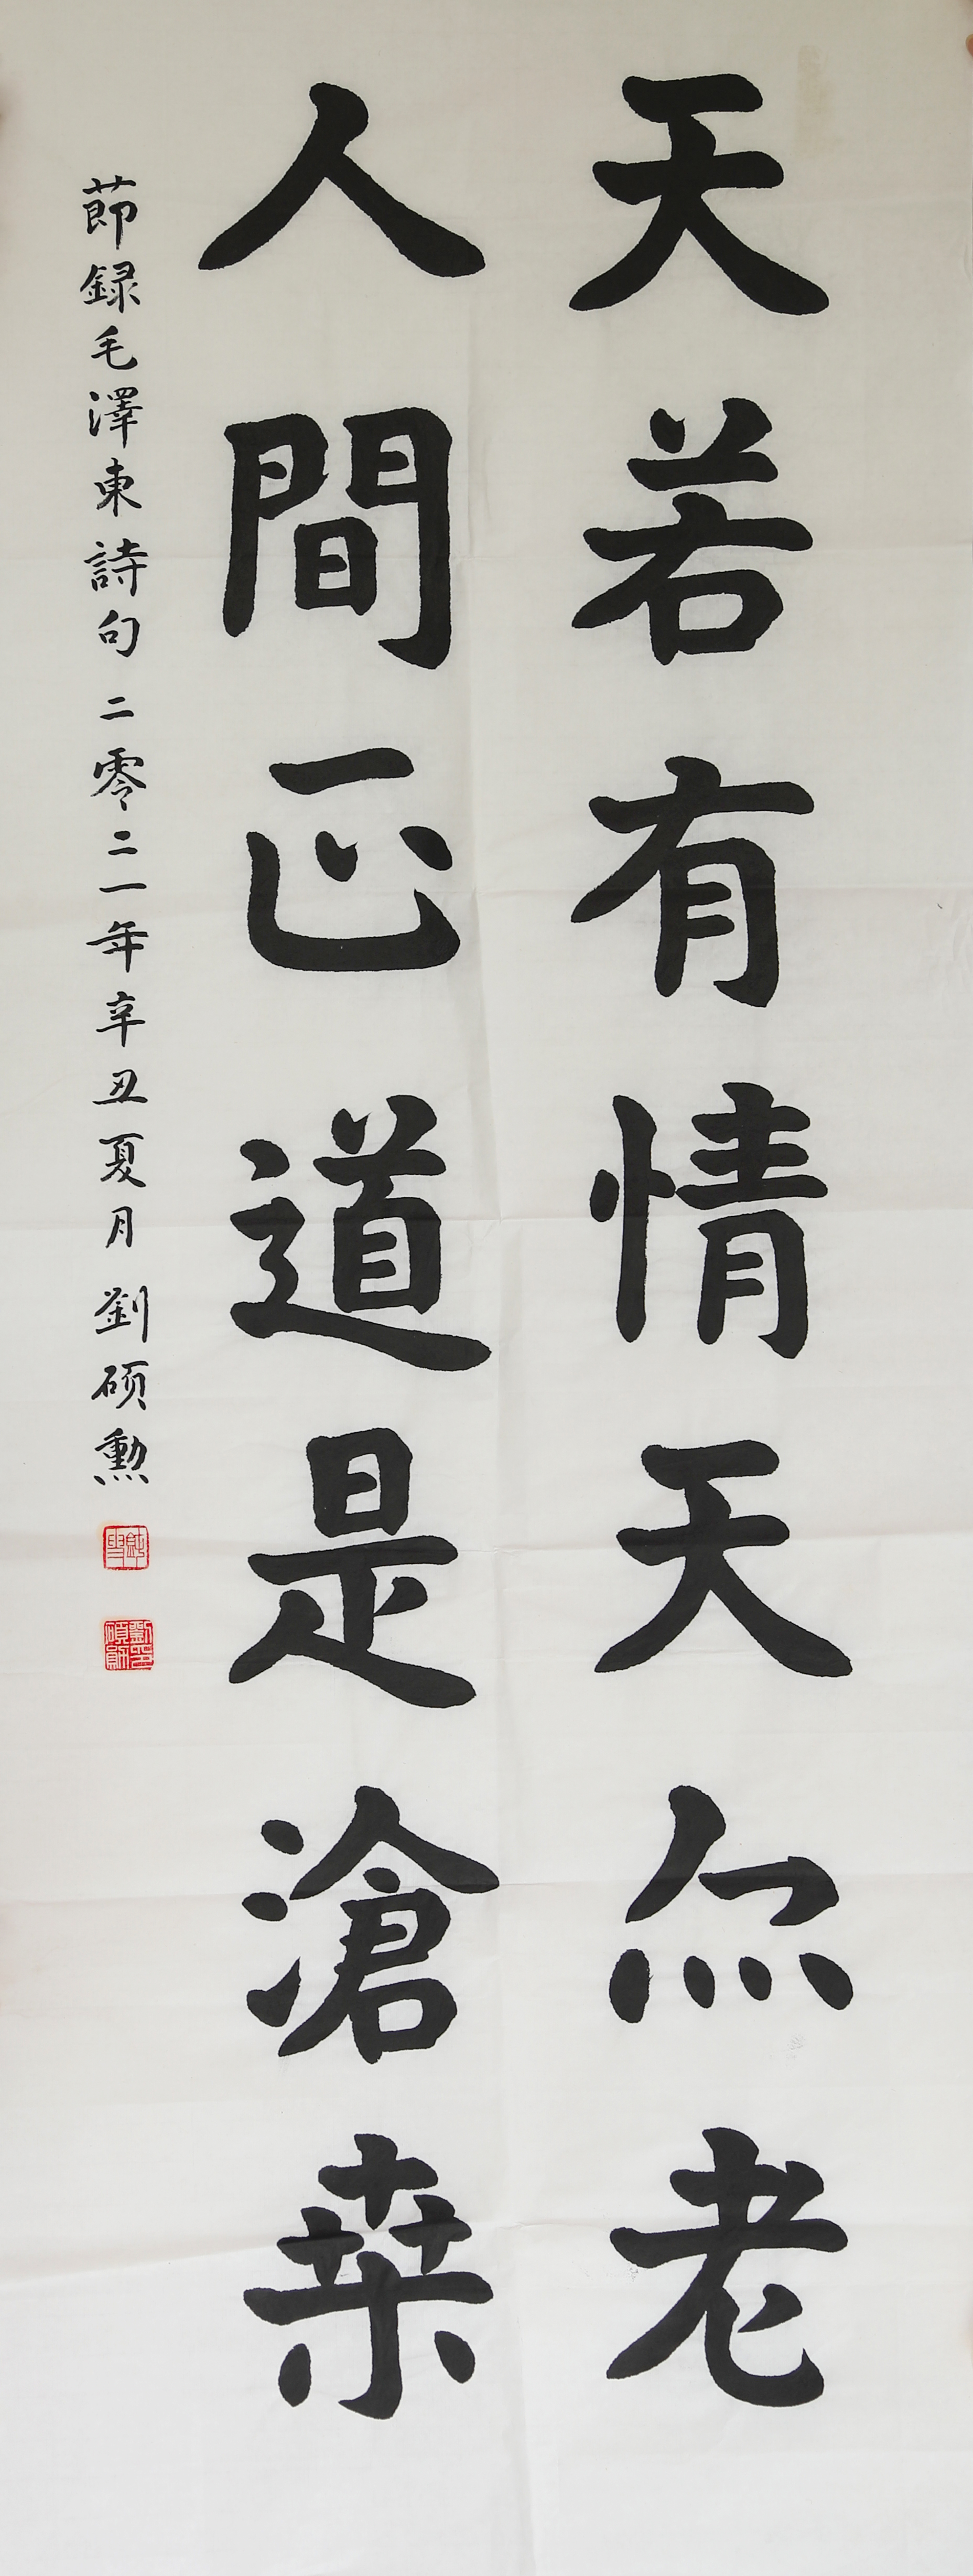 天若有情天亦老
人間正道是滄桒
莭録毛澤東詩句 二零二一年辛丑夏月 劉碩勲
劉碩勛印